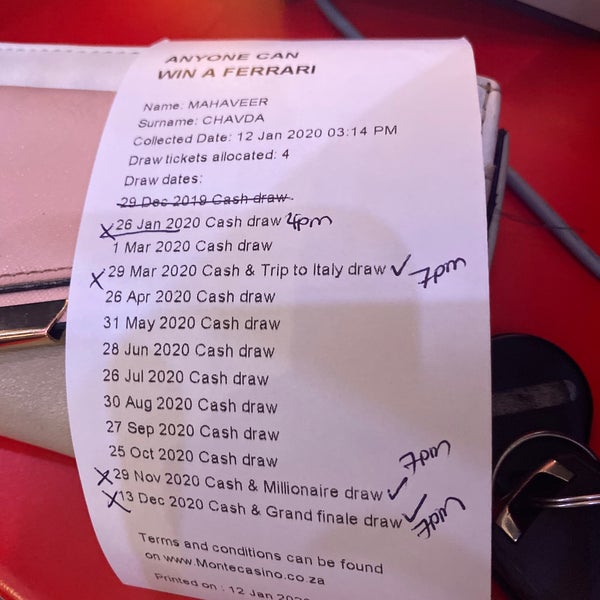 ANYONE CAN
WIN A FERRARI
Name: MAHAVEER
Surname: CHAVDA
Collected Date: 12 Jan 2020 03:14 PM
Draw tickets allocated: 4
Draw dates:
29 Dec 2019 Cash draw
X 26 Jan 2020 Cash draw 4pm
1 Mar 2020 Cash draw
X 29 Mar 2020 Cash & Trip to Italy draw ✓ 7pm
26 Apr 2020 Cash draw
31 May 2020 Cash draw
28 Jun 2020 Cash draw
26 Jul 2020 Cash draw
30 Aug 2020 Cash draw
27 Sep 2020 Cash draw
25 Oct 2020 Cash draw
X 29 Nov 2020 Cash & Millionaire draw ✓ 7pm
X 13 Dec 2020 Cash & Grand finale draw ✓
Terms and conditions can be found
on www.Montecasino.co.za
Printed on : 12 Jan